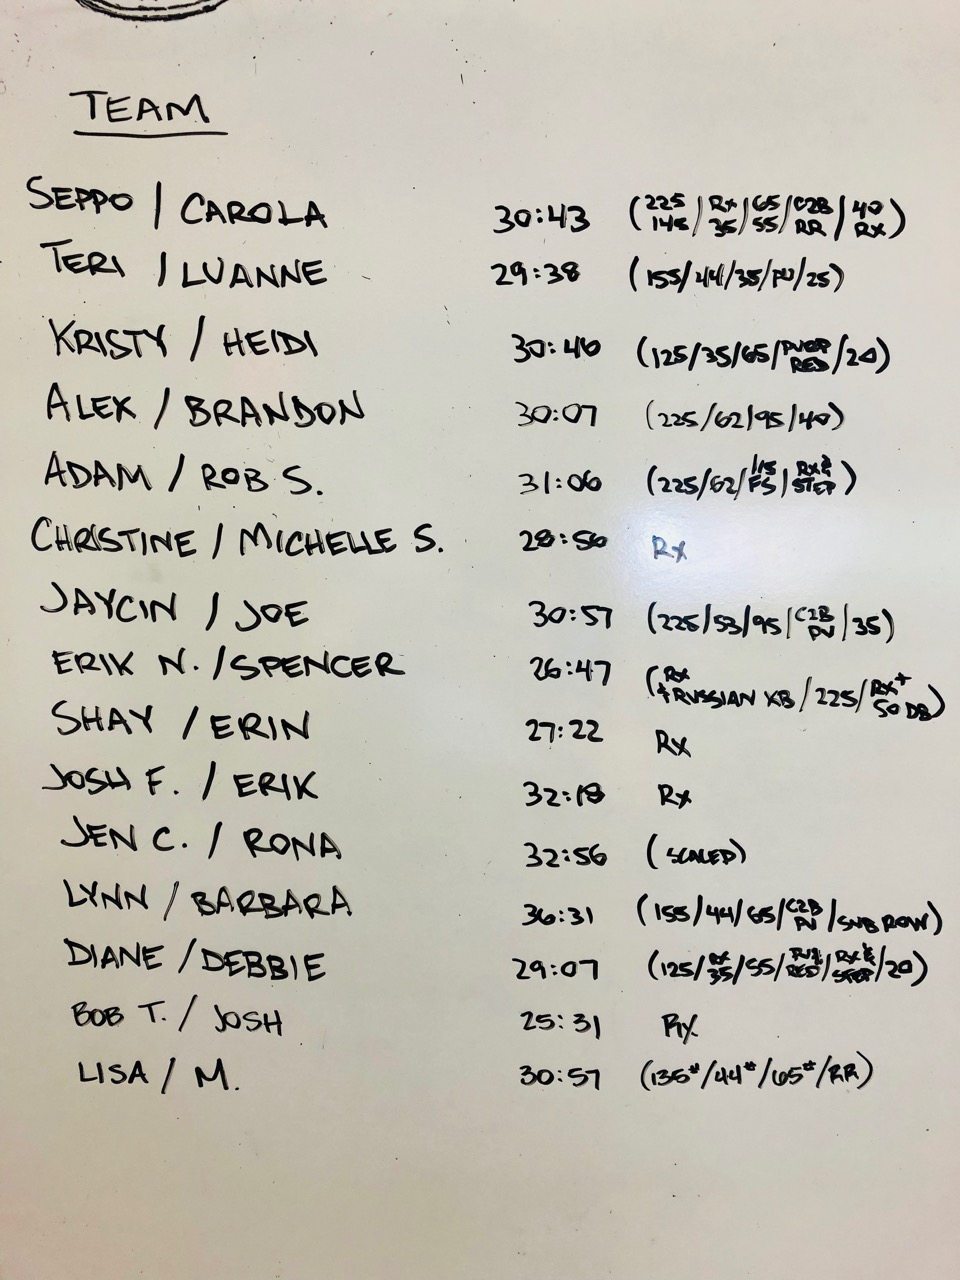 TEAM
SEPPO / CAROLA 30:43 (225 145 / Rx 35 / 65 55 / C2B RR / 40 Rx)
TERI / LUANNE 29:38 (155/44/35/PU/25)
KRISTY / HEIDI 30:40 (125/35/65/ RED /20)
ALEX / BRANDON 30:07 (225/62/95/40)
ADAM / ROB S. 31:06 (225/62/115 FS / Rx & STEP)
CHRISTINE / MICHELLE S. 28:56 Rx
JAYCIN / JOE 30:57 (225/53/95/C2B PU/35)
ERIK N. / SPENCER 26:47 (Rx + RUSSIAN KB / 225 / Rx+ 50 DB)
SHAY / ERIN 27:22 Rx
JOSH F. / ERIK 32:18 Rx
JEN C. / RONA 32:56 (SCALED)
LYNN / BARBARA 36:31 (155/44/65/C2B PU/SUB ROW)
DIANE / DEBBIE 29:07 (125/Rx 35/55/ RED/Rx & STEP/20)
BOB T. / JOSH 25:31 Rx
LISA / M. 30:57 (135#/44#/65#/RR)